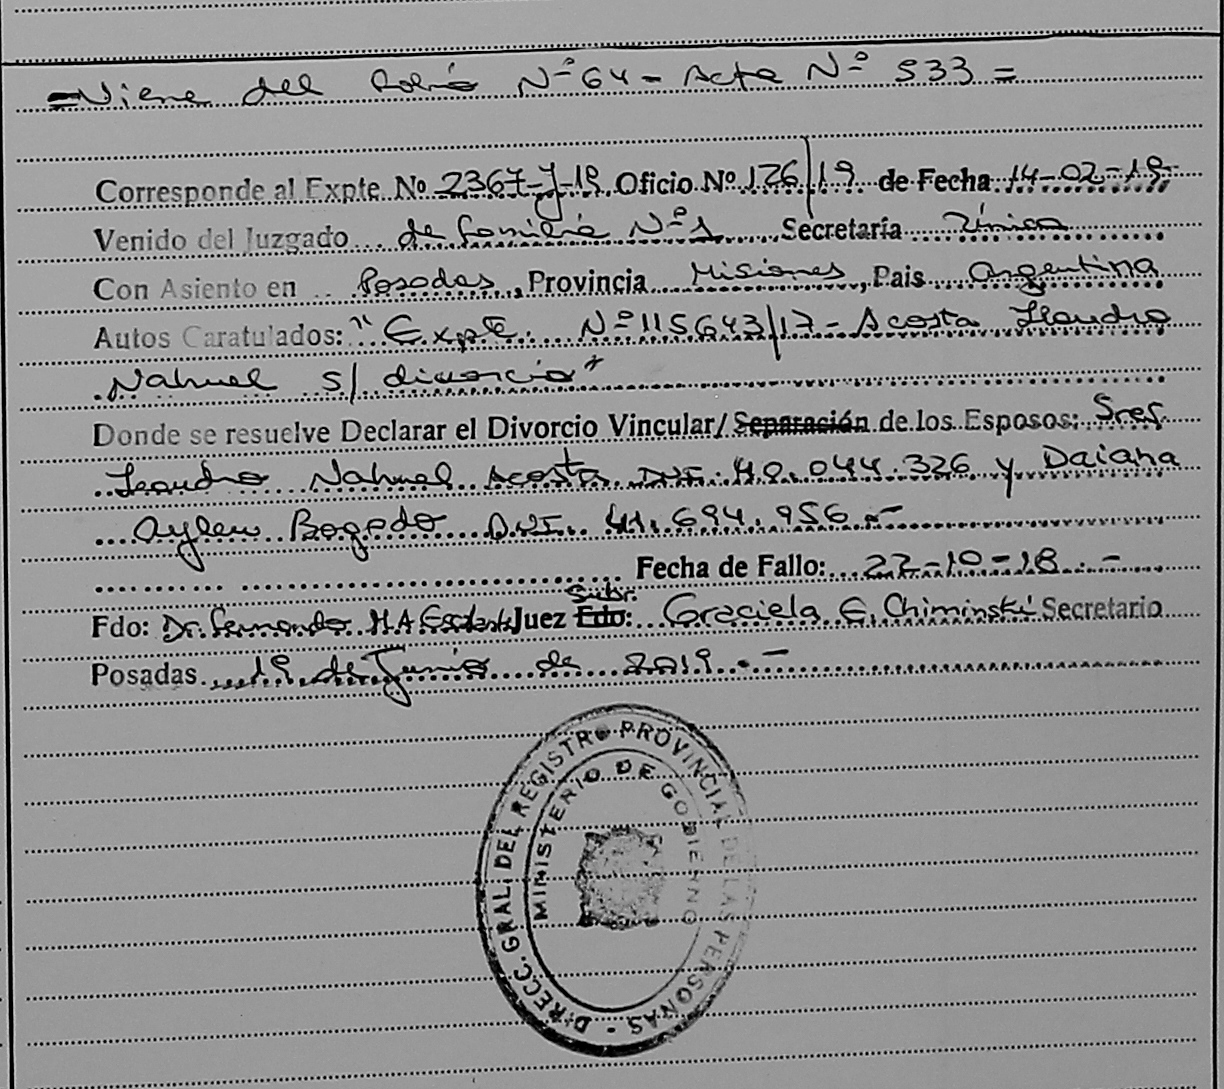 =Viene del Folio Nº 64 - Acta Nº 533 =
Corresponde al Expte. Nº 2367-J-19 Oficio Nº 126/19 de Fecha 14-02-19-
Venido del Juzgado de Familia Nº 1 Secretaría Única
Con Asiento en Posadas, Provincia Misiones, Pais Argentina
Autos Caratulados: "Expte. Nº 115643/17 - Acosta Leandro
Nahuel s/ divorcio"
Donde se resuelve Declarar el Divorcio Vincular/Separación de los Esposos: Sres
Leandro Nahuel Acosta DNI. 40.044.326 y Daiana
Aylen Bogado D.N.I. 41.694.956.-
Fecha de Fallo: 22-10-18.-
Subr.
Fdo: Dr. Fernando M.A. Juez Fdo: Graciela E. Chiminski Secretario
Posadas 19 de Junio de 2019.-
DIRECC. GRAL. DEL REGISTRO PROVINCIAL DE LAS PERSONAS -
MINISTERIO DE GOBIERNO